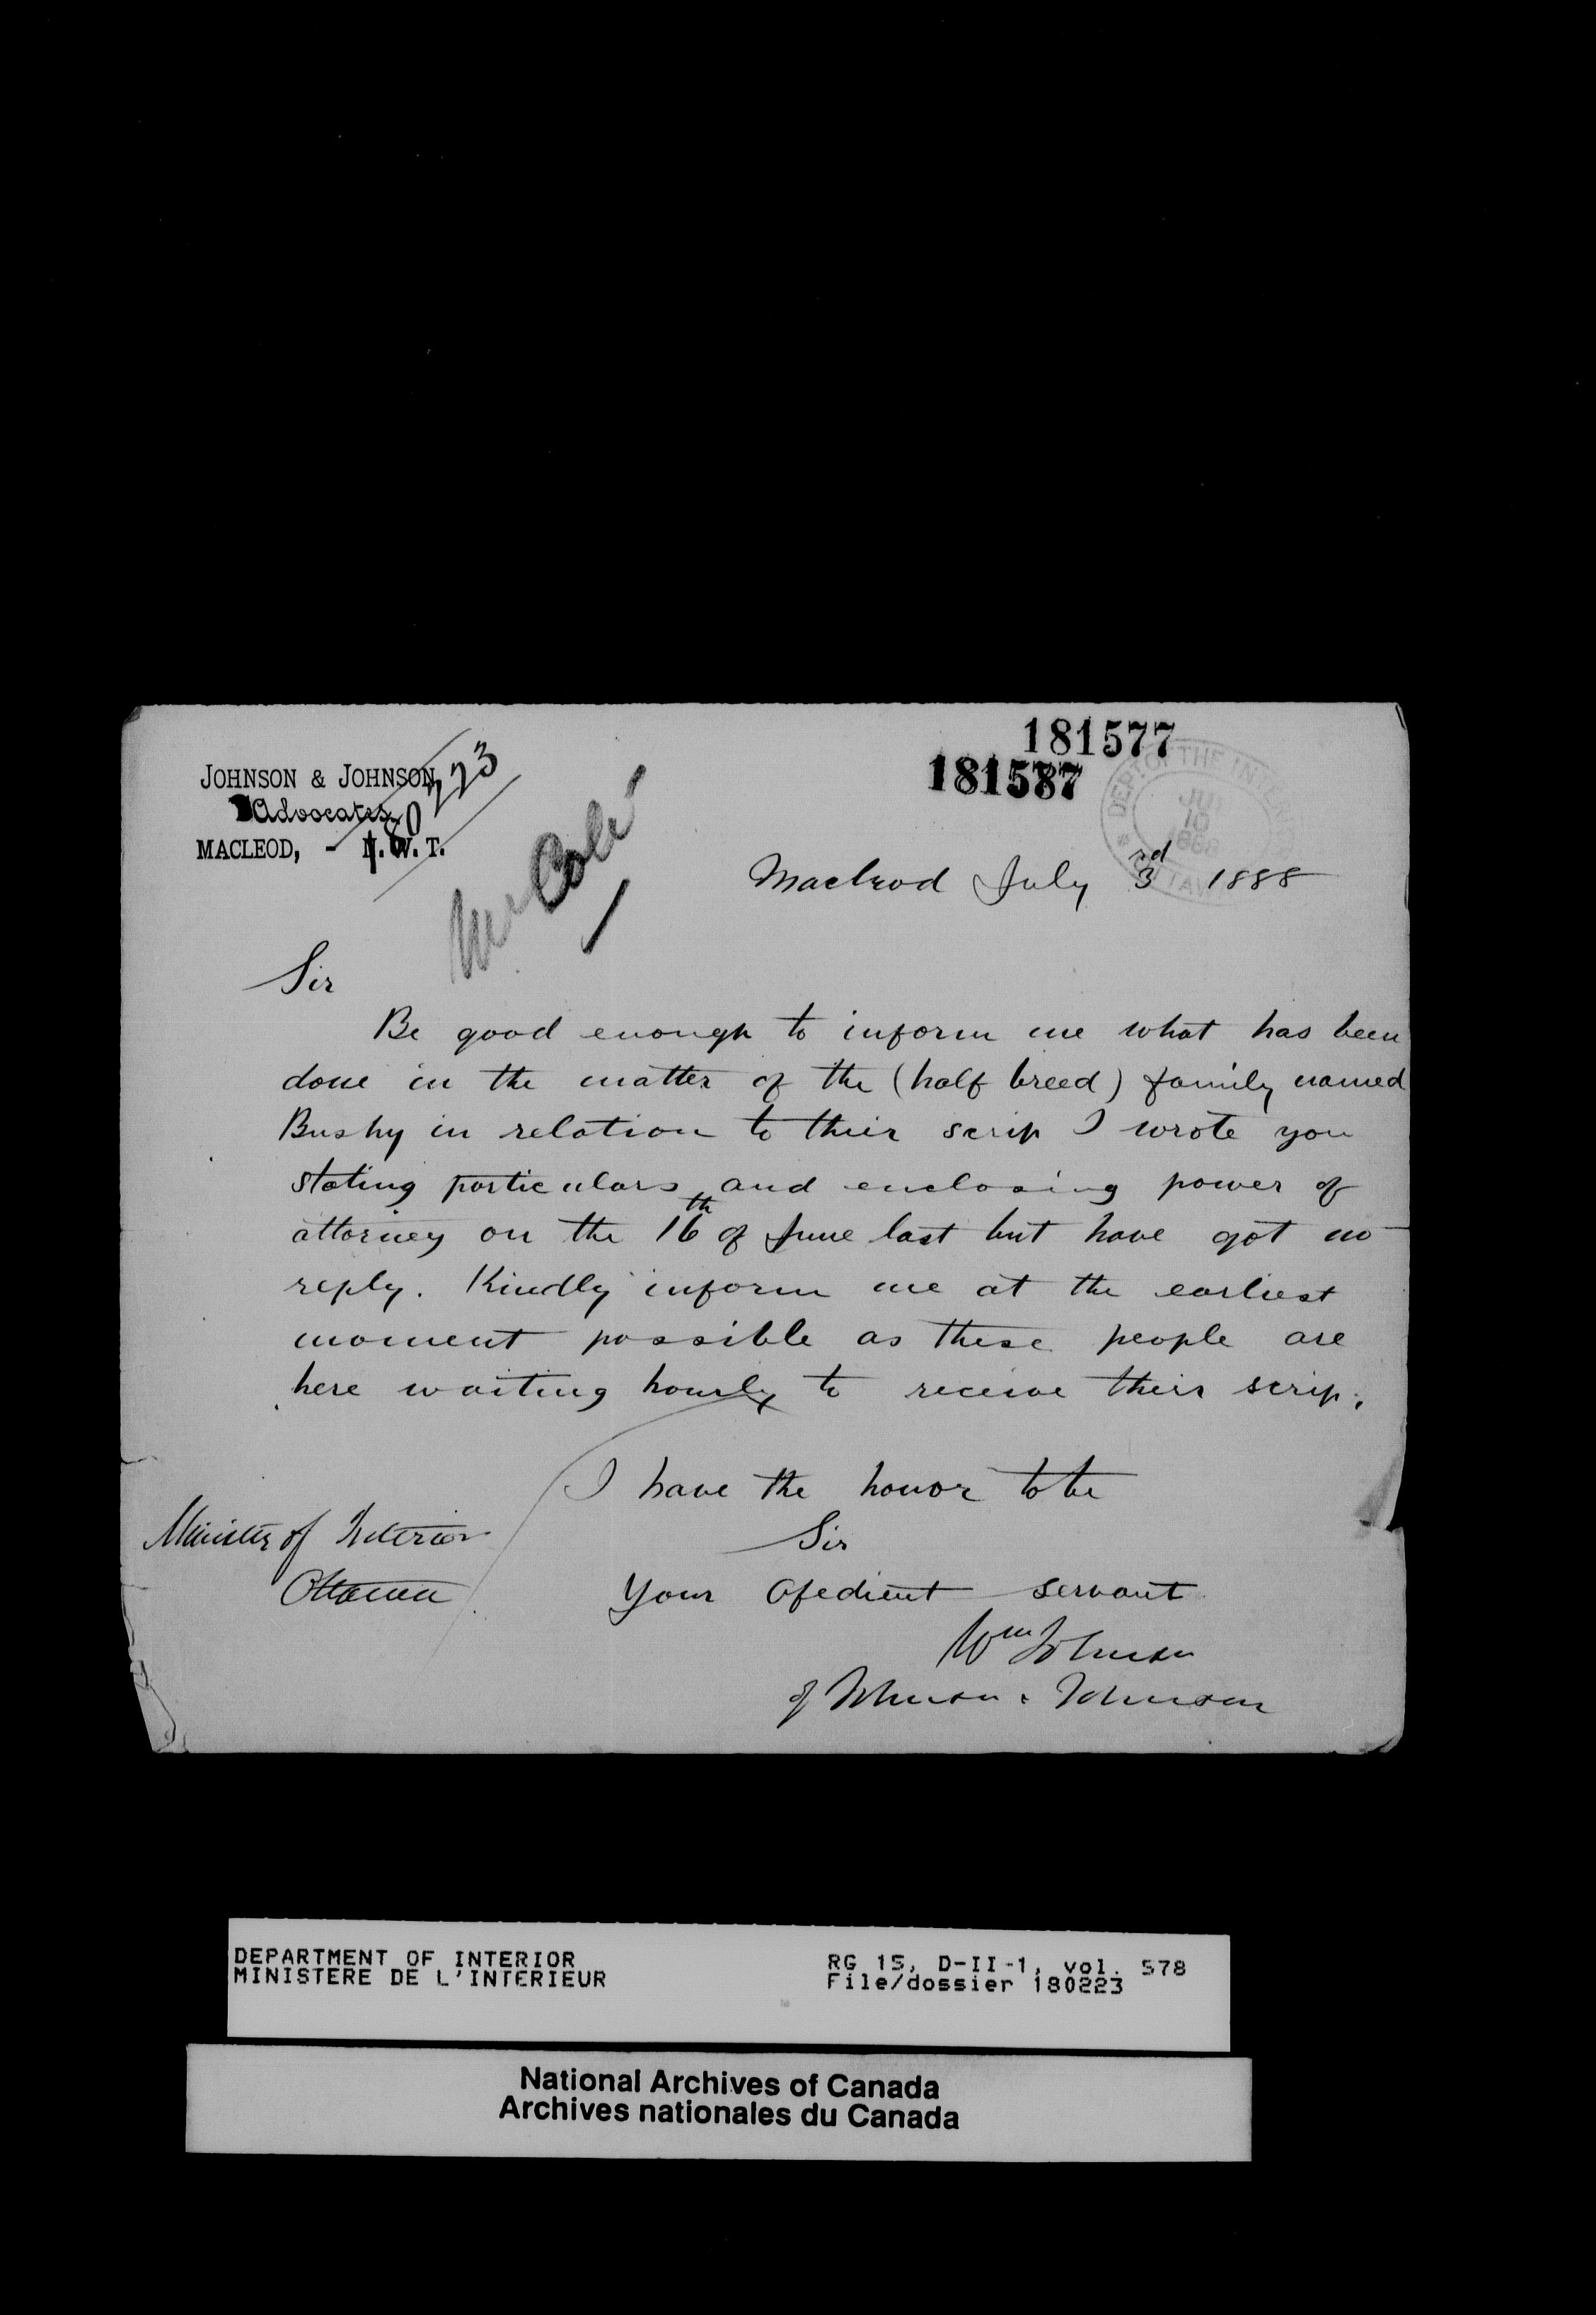 181577
181587
JOHNSON & JOHNSON,
Advocates,
MACLEOD, - N.W.T.
180223
DEPT OF THE INTERIOR
10
Macleod July 3rd 1888
Sir
Be good enough to inform me what has been
done in the matter of the (half breed) family named
Bushy in relation to their scrip I wrote you
stating particulars and enclosing power of
attorney on the 16th of June last but have got no
reply. Kindly inform me at the earliest
moment possible as these people are
here waiting hourly to receive their scrip.
I have the honor to be
Sir
Your Obedient servant
Wm Johnson
of Johnson & Johnson
Minister of Interior
Ottawa
DEPARTMENT OF INTERIOR
MINISTERE DE L'INTERIEUR
RG 15, D-II-1, vol. 578
File/dossier 180223
National Archives of Canada
Archives nationales du Canada